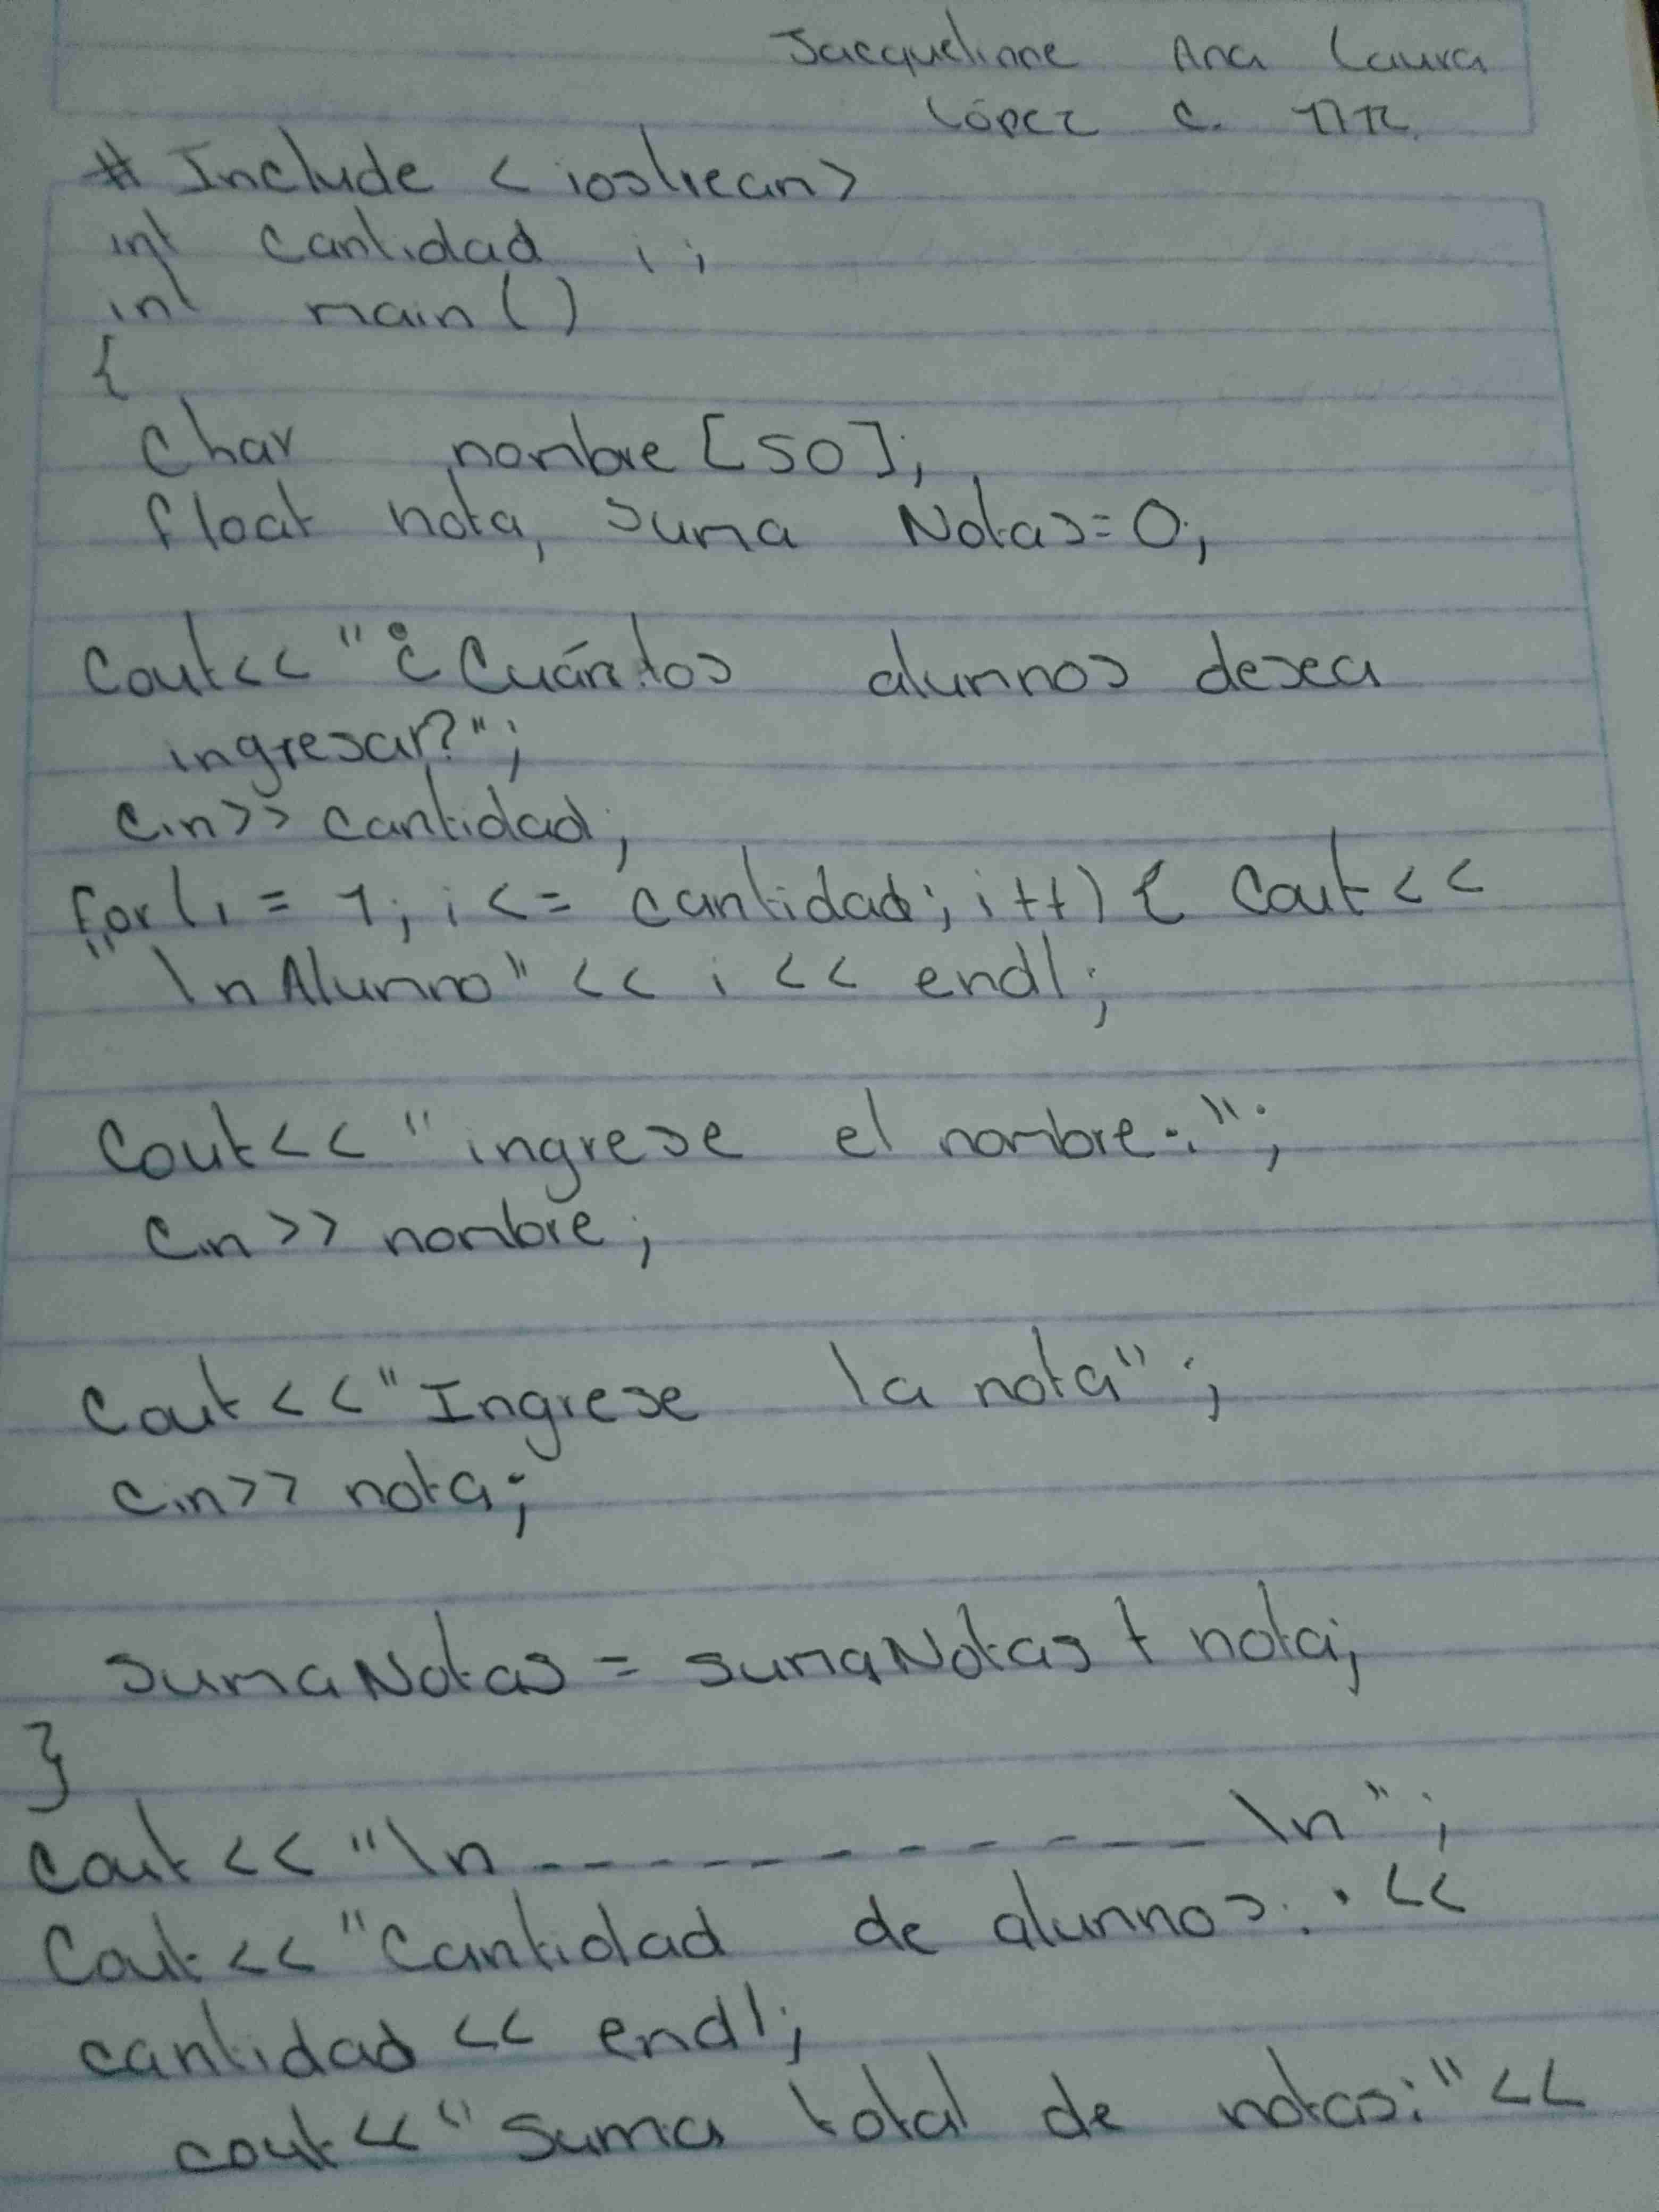 Jacquelinne Ana Laura
López C.
# Include < iostrean>
int cantidad i;
int main()
{
Char nombre [50];
float nota, suma Notas=0;
Cout<< "¿Cuántos alumnos desea
ingresar?";
Cin>> cantidad;
for(i = 1; i <= cantidad; i++) { Cout<<
"\nAlumno" << i << endl;
Cout<< "ingrese el nombre:";
Cin >> nombre;
Cout<<"Ingrese la nota";
Cin>> nota;
sumaNotas = sumaNotas + nota;
}
Cout << "\n------------\n";
Cout<< "Cantidad de alumnos: " <<
cantidad << endl;
cout<< "Suma total de notas:"<<